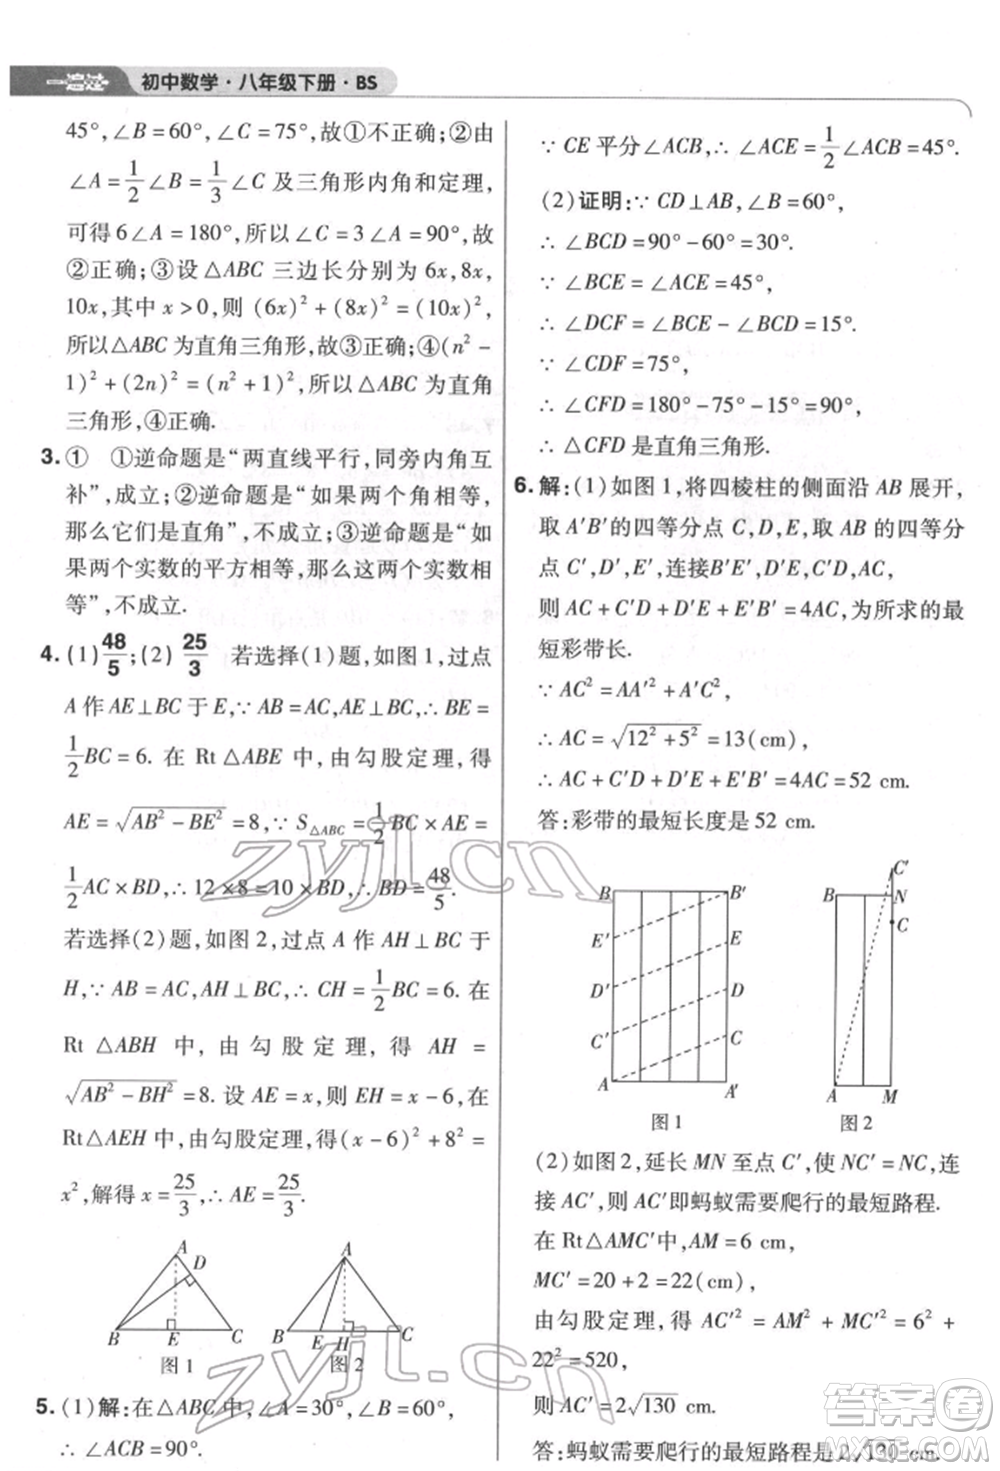 一遍过 初中数学·八年级下册·BS
45°,∠B=60°,∠C=75°,故①不正确;②由
∠A=1/2∠B=1/3∠C 及三角形内角和定理,
可得 6∠A=180°,所以∠C=3∠A=90°,故
②正确;③设△ABC 三边长分别为 6x,8x,
10x,其中 x>0,则 (6x)²+(8x)²=(10x)²,
所以△ABC 为直角三角形,故③正确;④(n²-
1)²+(2n)²=(n²+1)²,所以△ABC 为直角
三角形,④正确.
3.① ①逆命题是“两直线平行,同旁内角互
补”,成立;②逆命题是“如果两个角相等,
那么它们是直角”,不成立;③逆命题是“如
果两个实数的平方相等,那么这两个实数相
等”,不成立.
4.(1)48/5;(2)25/3 若选择(1)题,如图 1,过点
A 作 AE⊥BC 于 E,∵AB=AC,AE⊥BC,∴BE=
1/2BC=6. 在 Rt△ABE 中,由勾股定理,得
AE=√(AB²-BE²)=8,∵S△ABC=1/2BC×AE=
1/2AC×BD,∴12×8=10×BD,∴BD=48/5.
若选择(2)题,如图 2,过点 A 作 AH⊥BC 于
H,∵AB=AC,AH⊥BC,∴CH=1/2BC=6. 在
Rt△ABH 中,由勾股定理,得 AH=
√(AB²-BH²)=8. 设 AE=x,则 EH=x-6,在
Rt△AEH 中,由勾股定理,得(x-6)²+8²=
x²,解得 x=25/3,∴AE=25/3.
A
D
B E C
图 1
A
B E H C
图 2
5.(1)解:在△ABC 中,∠A=30°,∠B=60°,
∴∠ACB=90°.
∵CE 平分∠ACB,∴∠ACE=1/2∠ACB=45°.
(2)证明:∵CD⊥AB,∠B=60°,
∴∠BCD=90°-60°=30°.
∵∠BCE=∠ACE=45°,
∴∠DCF=∠BCE-∠BCD=15°.
∵∠CDF=75°,
∴∠CFD=180°-75°-15°=90°,
∴△CFD 是直角三角形.
6.解:(1)如图 1,将四棱柱的侧面沿 AB 展开,
取 A′B′的四等分点 C,D,E,取 AB 的四等分
点 C′,D′,E′,连接B′E′,D′E,C′D,AC,
则 AC+C′D+D′E+E′B′=4AC,为所求的最
短彩带长.
∵AC²=AA′²+A′C²,
∴AC=√(12²+5²)=13(cm),
∴AC+C′D+D′E+E′B′=4AC=52 cm.
答:彩带的最短长度是 52 cm.
B B′
E′ E
D′ D
C′ C
A A′
图 1
C′
B N
C
A M
图 2
(2)如图 2,延长 MN 至点 C′,使 NC′=NC,连
接 AC′,则 AC′即蚂蚁需要爬行的最短路程.
在 Rt△AMC′中,AM=6 cm,
MC′=20+2=22(cm),
由勾股定理,得 AC′²=AM²+MC′²=6²+
22²=520,
则 AC′=2√130 cm.
答:蚂蚁需要爬行的最短路程是 2√130 cm.
zyjl.cn
zyjl.cn
中小学答案圈
MXQE.COM